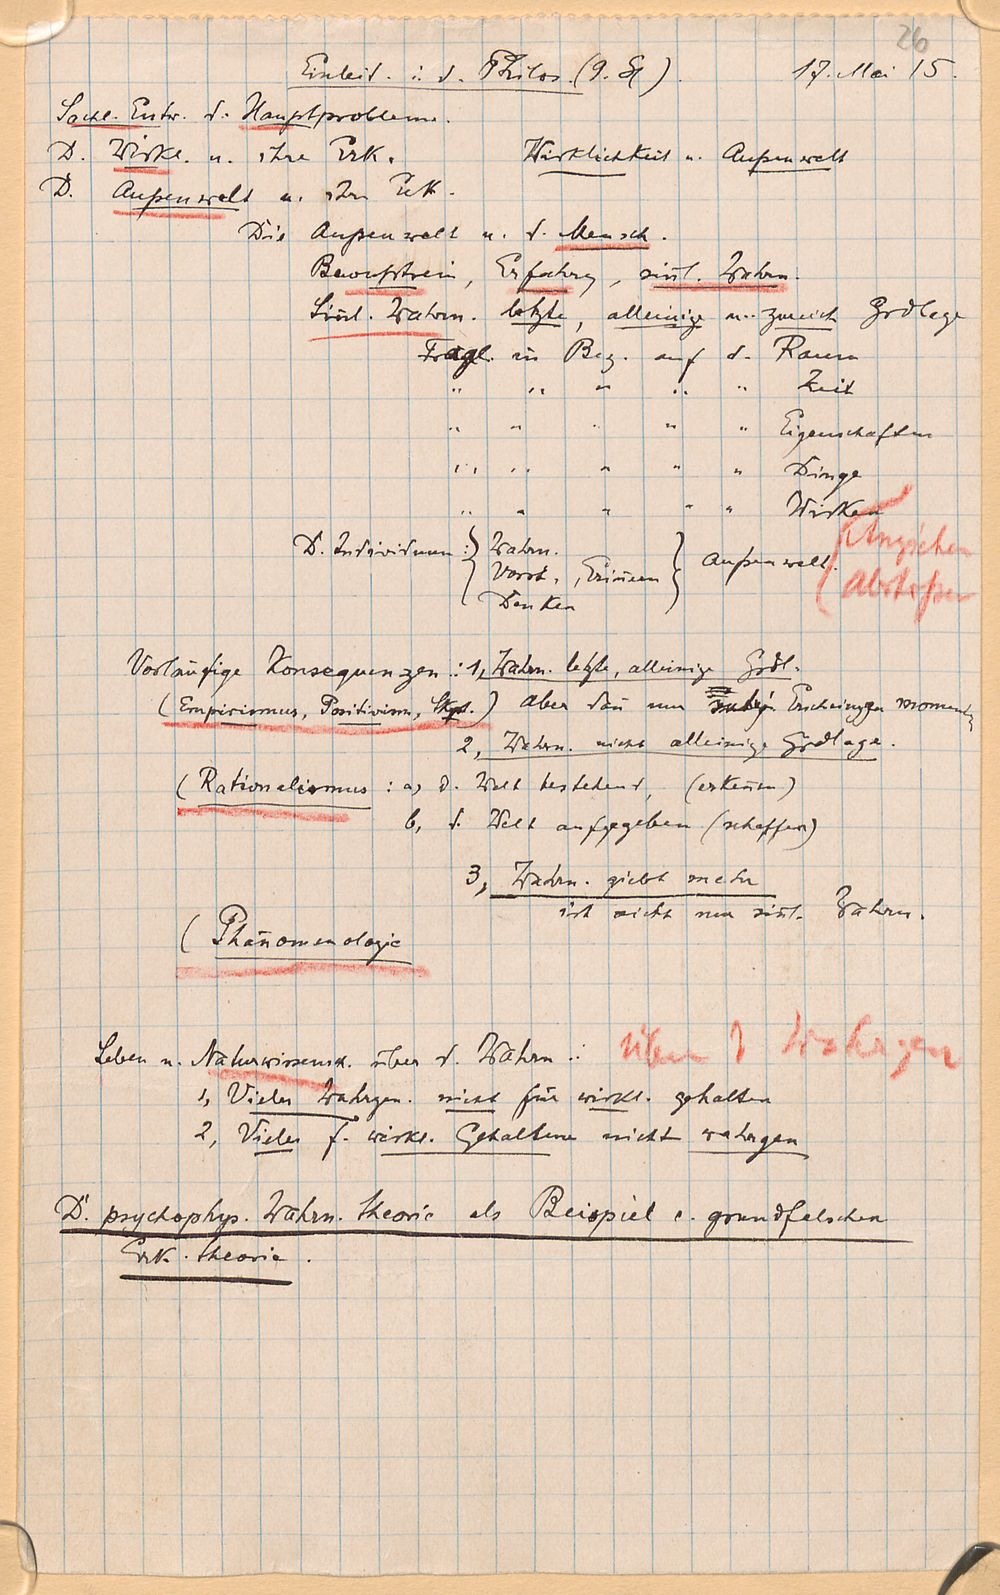 26
Einleit. i. d. Philos. (9. St) 17. Mai 15.
Sachl. Entw. d. Hauptprobleme.
D. Wirkl. u. ihre Erk. Wirklichkeit u. Außenwelt
D. Außenwelt u. ihre Erk.
Die Außenwelt u. d. Mensch.
Bewußtsein, Erfahrg, sinl. Wahrn.
Sinl. Wahrn. letzte, alleinige u. zureich Grdlage
Fragl. in Bez. auf d. Raum
" " " " " Zeit
" " " " " Eigenschaften
" " " " " Dinge
" " " " " Wirken
Anziehen
Abstoßen
D. Individuum : { Wahrn.
Vorst., Erinnern } Außenwelt.
Denken
Vorläufige Konsequenzen : 1, Wahrn. letzte, alleinige Grdl.
(Empirismus, Positivism, Skpt.) aber dañ nur Erscheinungen momentan
2, Wahrn. nicht alleinige Grdlage.
(Rationalismus : a, d. Welt bestehend, (erkennen)
b, d. Welt aufgegeben (schaffen)
3, Wahrn. giebt mehr
ist nicht nur sinl. Wahrn.
(Phänomenologie
Leben u. Naturwissensch. über d. Wahrn : über d Wahrgen
1, Vieles Wahrgen. nicht für wirkl. gehalten
2, Vieles f. wirkl. Gehaltene nicht wahrgen
D. psychophys. Wahrn. theorie als Beispiel e. grundfalschen
Erk. theorie.